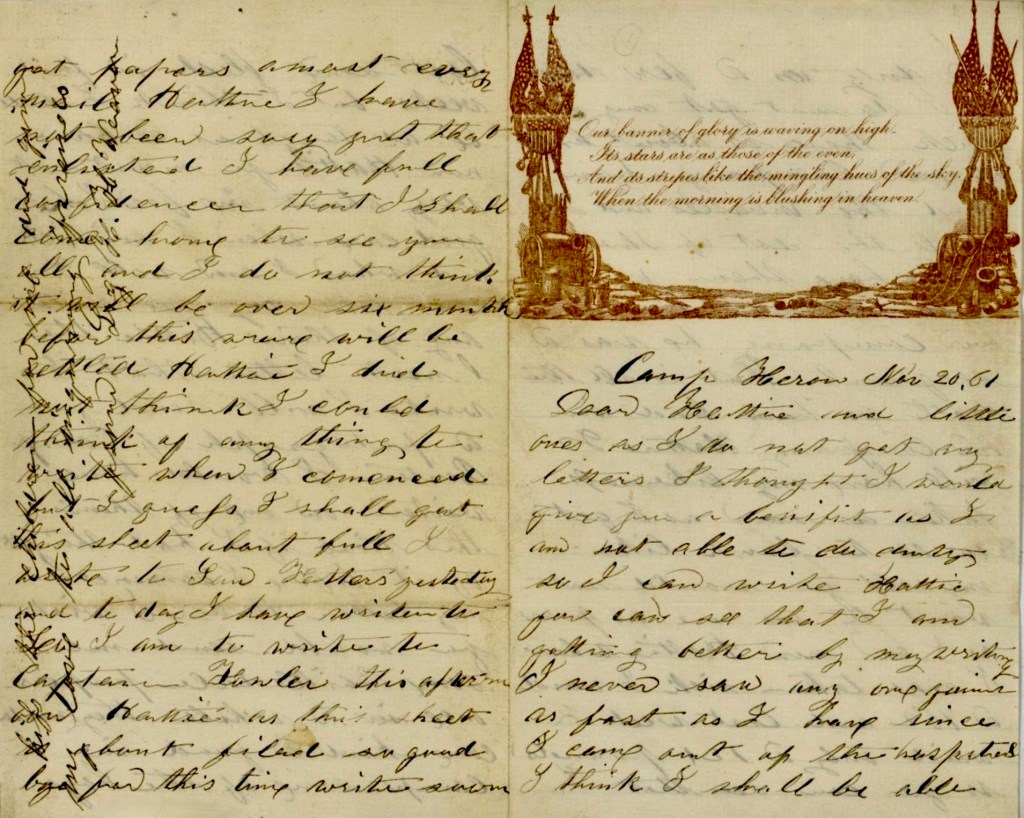 Our banner of glory is waving on high.
Its stars are as those of the even,
And its stripes like the mingling hues of the sky,
When the morning is blushing in heaven.
Camp Heron Nov 20, 61
Dear Hattie and little
ones as I do not get my
letters I thought I would
give you a benifit as I
am not able to do duty
so I can write Hattie
you can see that I am
getting better by my writing
I never saw any one gain
as fast as I have since
I came out of the hospital
I think I shall be able
got papers amost every
mail Hattie I have
not been sory yet that
enlisted I have full
confidencer that I shall
come home to see you
all and I do not think
it will be over six month
before this will be
settled Hattie I did
not think I could
think of any thing to
write when I comenced
but I guess I shall get
this sheet about full I
wrote to yesterday
and to day I have writen to
I am to write to
Captain Fowler this after
noon Hattie as this sheet
is about filed so good
bye for this time write soon
children for me
my love to all